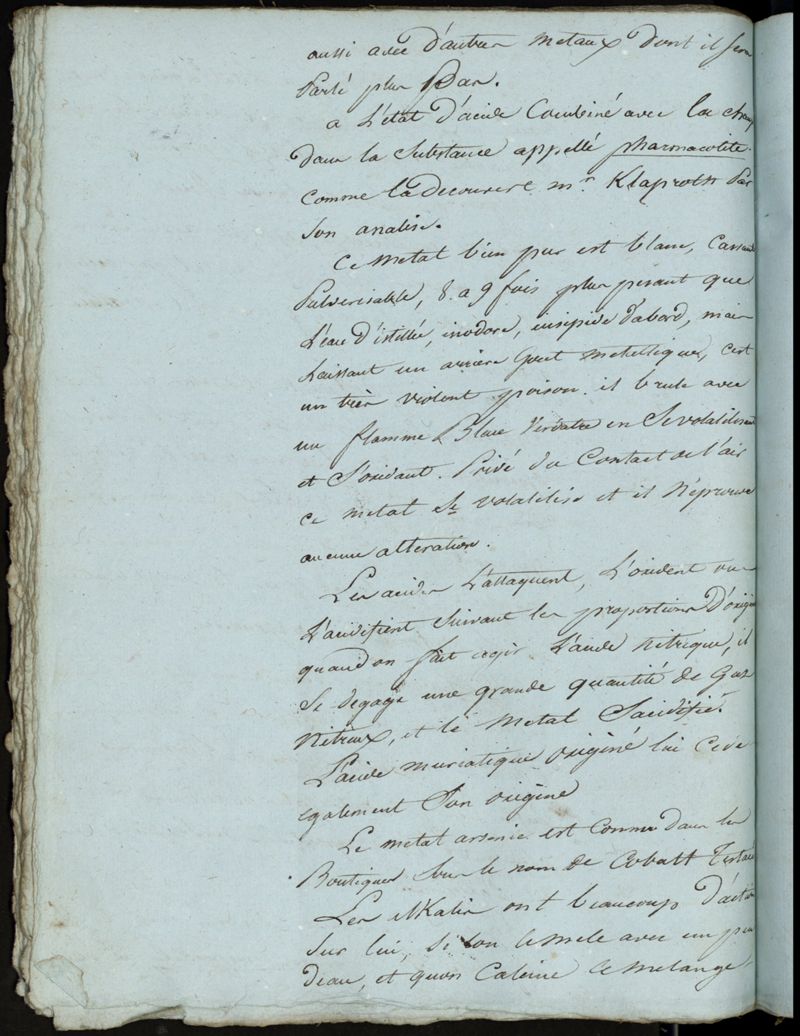 aussi avec d'autres metaux dont il sera
Parlé plus Bas.
a L'état d'acide Combiné avec la chaux
dans la Substance appellé pharmacolite.
Comme la decouvert mr Klaproth Par
Son analise.
Ce Metal bien pur est blanc, Cassant
Pulverisable, 8. a 9 fois plus pesant que
L'eau D'istillée, inodore, insipide d'abord, mais
Laissant un arriere Gout Metallique, c'est
un très violent poison. il brule avec
un flamme Bleue Verdatre en Se volatilisant
et S'oxidant. Privé du Contact de l'air
ce metal Se volatilise et il N'eprouve
aucune alteration.
Les acides L'attaquent, L'oxident ou
L'acidifient Suivant les proportions D'oxigene
quand on fait agir L'acide nitrique, il
Se degage une grande quantité de Gas
Nitreux, et le Metal S'acidifié.
L'acide muriatique oxigené lui Cede
egalement Son oxigene
Le metal arsenic est Connu dans les
Boutiques Sous le nom de Cobalt
Les alKalis ont beaucoup D'action
Sur lui, Si lon le mele avec un peu
d'eau, et quon Calcine le melange